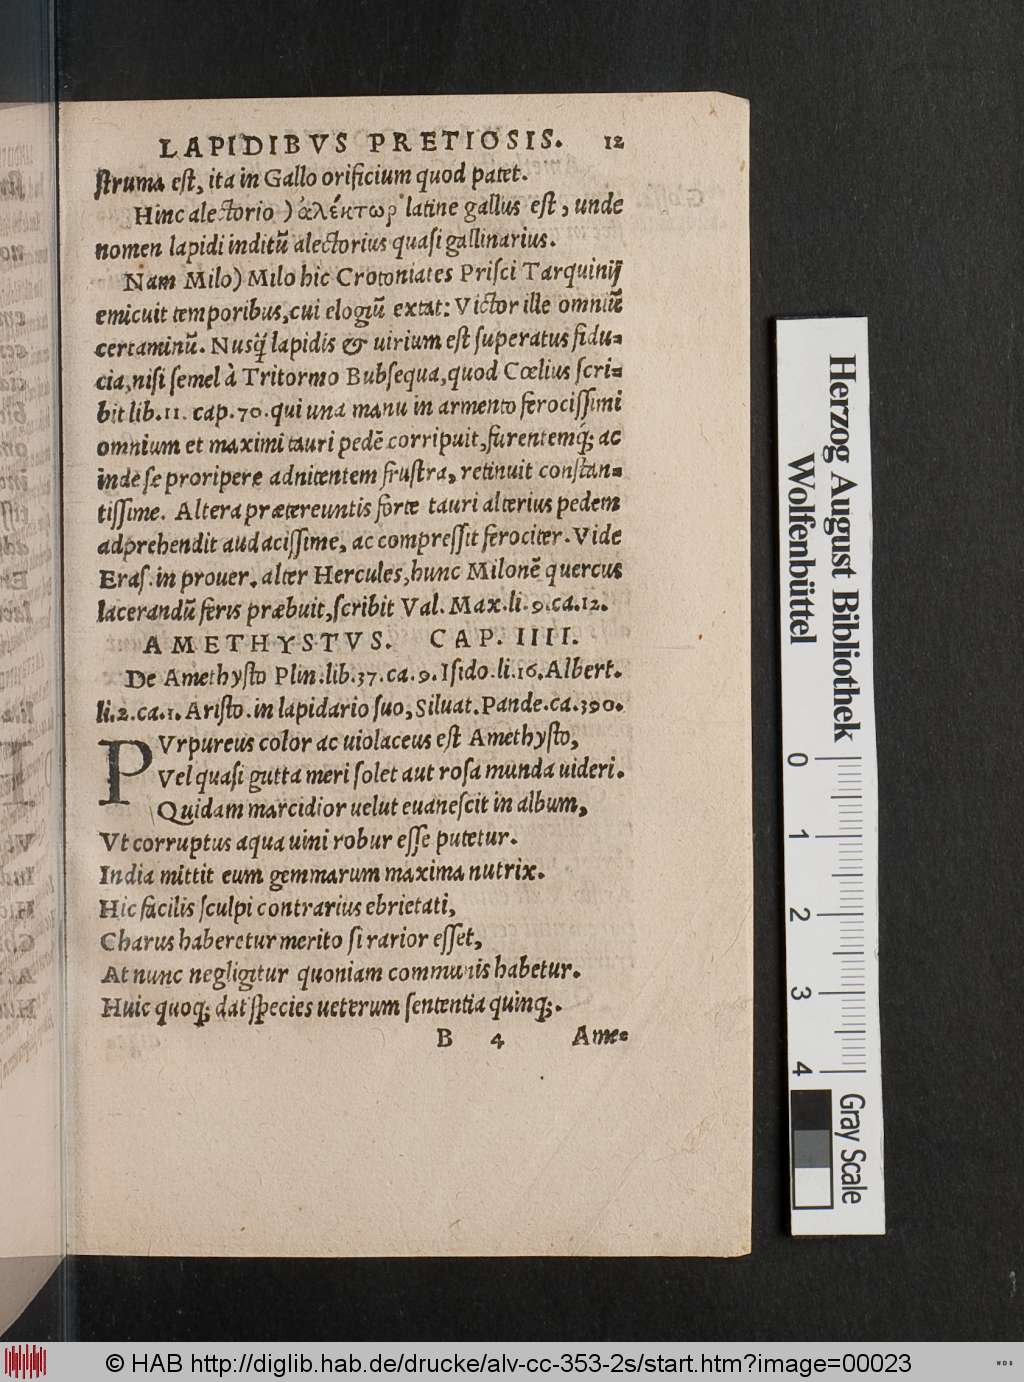 LAPIDIBVS PRETIOSIS. 12
ſtruma eſt, ita in Gallo orificium quod patet.
Hinc alectorio ) ἀλέκτωρ latine gallus eſt, unde
nomen lapidi inditũ alectorius quaſi gallinarius.
Nam Milo) Milo hic Crotoniates Priſci Tarquinij
emicuit temporibus, cui elogiũ extat: Victor ille omniũ
certaminũ. Nusq́ lapidis & uirium eſt ſuperatus fidu-
cia, niſi ſemel à Tritormo Bubſequa, quod Cœlius ſcri-
bit lib. 11. cap. 70. qui una manu in armento ferociſſimi
omnium et maximi tauri pedẽ corripuit, furentemq́; ac
inde ſe proripere adnitentem fruſtra, retinuit conſtan-
tiſſime. Altera prætereuntis forte tauri alterius pedem
adprehendit audaciſſime, ac compreſſit ferociter. Vide
Eraſ. in prouer. alter Hercules, hunc Milonẽ quercus
lacerandũ feris præbuit, ſcribit Val. Max. li. 9. ca. 12.
AMETHYSTVS. CAP. IIII.
De Amethyſto Plin. lib. 37. ca. 9. Iſido. li. 16. Albert.
li. 2. ca. 1. Ariſto. in lapidario ſuo, Siluat. Pande. ca. 390.
PVrpureus color ac uiolaceus eſt Amethyſto,
Vel quaſi gutta meri ſolet aut roſa munda uideri.
Quidam marcidior uelut euaneſcit in album,
Vt corruptus aqua uini robur eſſe putetur.
India mittit eum gemmarum maxima nutrix.
Hic facilis ſculpi contrarius ebrietati,
Charus haberetur merito ſi rarior eſſet,
At nunc negligitur quoniam communis habetur.
Huic quoq; dat ſpecies ueterum ſententia quinq;.
B 4 Ame-
Herzog August Bibliothek
Wolfenbüttel
0 1 2 3 4
Gray Scale
© HAB http://diglib.hab.de/drucke/alv-cc-353-2s/start.htm?image=00023